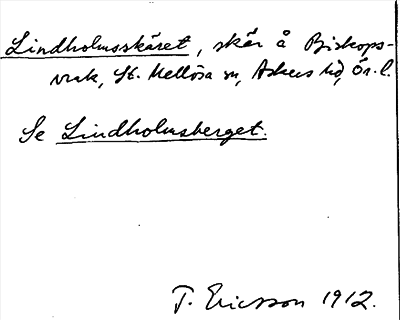 Lindholmsskäret, skär å Biskops-
vrak, St. Mellösa sn, Askers hd, Ör. l.
Se Lindholmsberget.
T. Ericsson 1912.